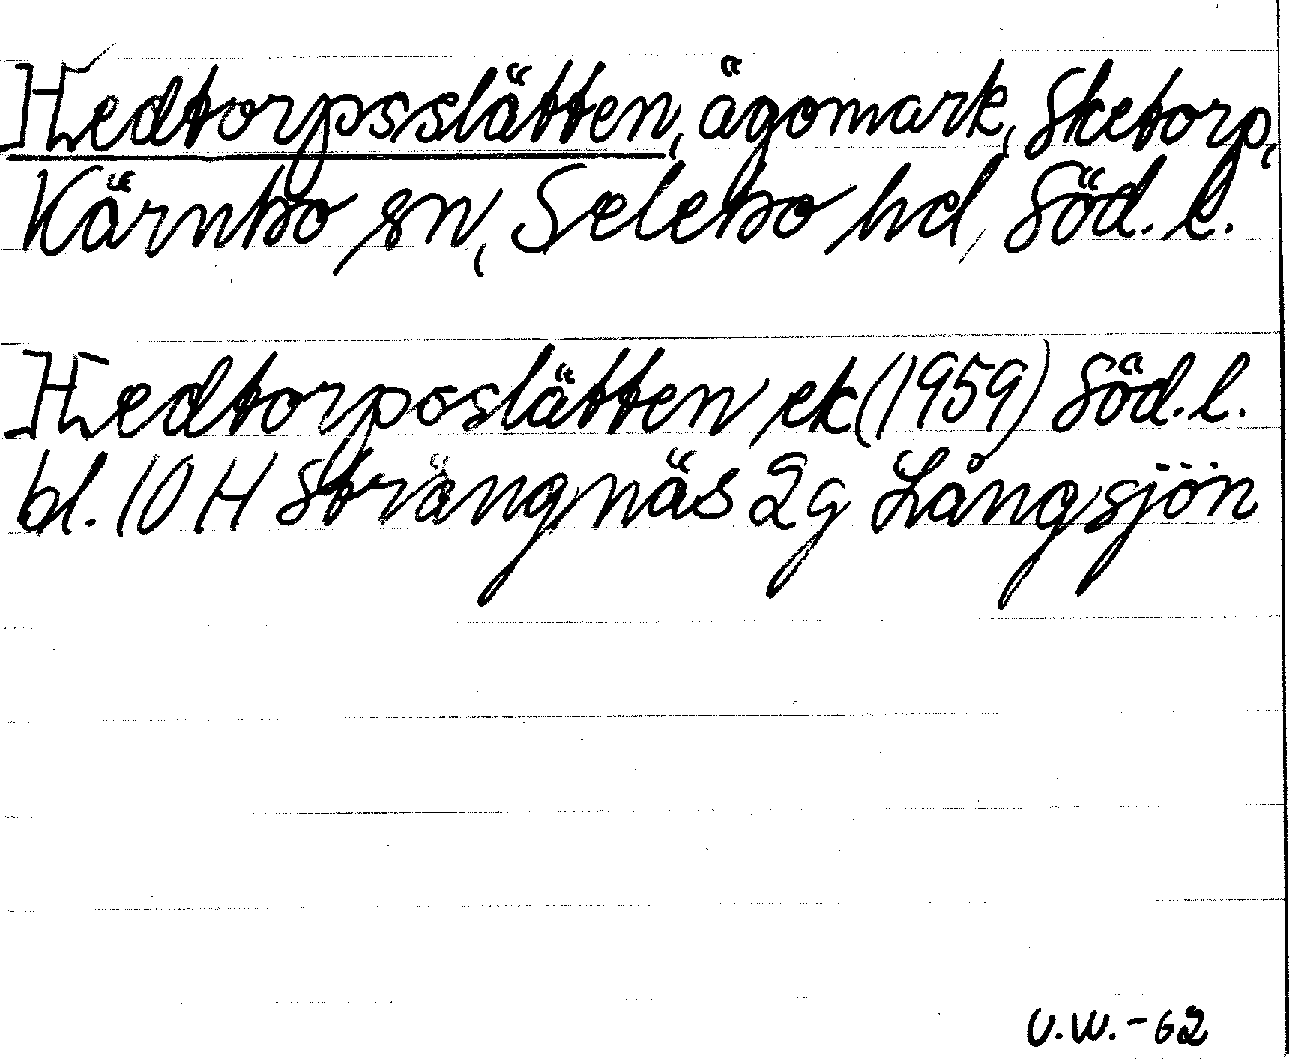 Hedtorpsslätten, ägomark, Sketorp,
Kärnbo sn, Selebo hd, Söd. l.
Hedtorpsslätten ek (1959) Söd. l.
bl. 10 H Strängnäs 2g Långsjön
U.W. - 62